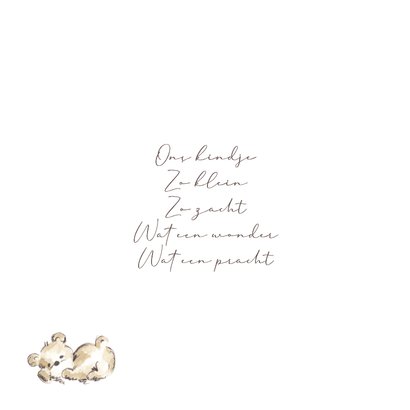 Ons kindje
Zo klein
Zo zacht
Wat een wonder
Wat een pracht